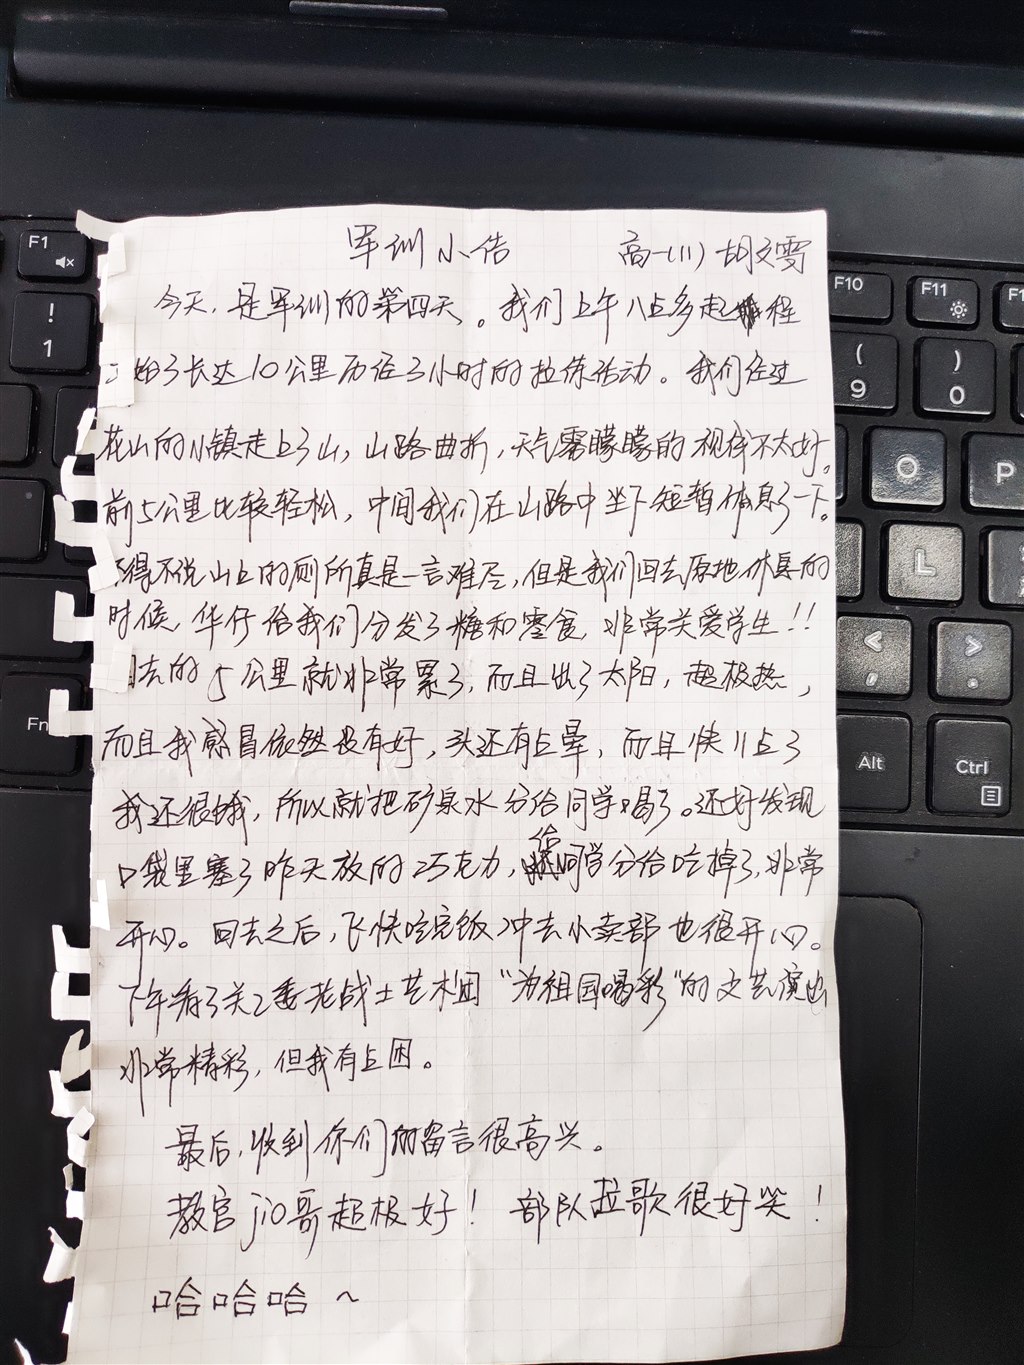 军训小结 高一(1) 胡文雯
今天，是军训的第四天。我们上午八点多起程
始了长达10公里历经3小时的拉练活动。我们经过
花山的小镇走上了山，山路曲折，天气雾朦朦的视线不太好。
前5公里比较轻松，中间我们在山路中坐下短暂休息了一下。
不得不说山上的厕所真是一言难尽，但是我们回去原地休息的
时候，华仔给我们分发了糖和零食，非常关爱学生！！
回去的5公里就非常累了，而且出了太阳，超极热，
而且我感冒依然没有好，头还有点晕，而且快11点了
我还很饿，所以就把矿泉水分给同学喝了。还好发现
口袋里塞了昨天放的巧克力，给同学分给吃掉了，非常
开心。回去之后，飞快吃完饭冲去小卖部也很开心。
下午看了关工委老战士艺术团“为祖国喝彩”的文艺演出
非常精彩，但我有点困。
最后，收到你们的留言很高兴。
教官jio哥超极好！ 部队拉歌很好笑！
哈哈哈 ～
F1
!
1
Fn
F10
F11
F1
(
9
)
0
O
P
L
<
,
>
.
Alt
Ctrl